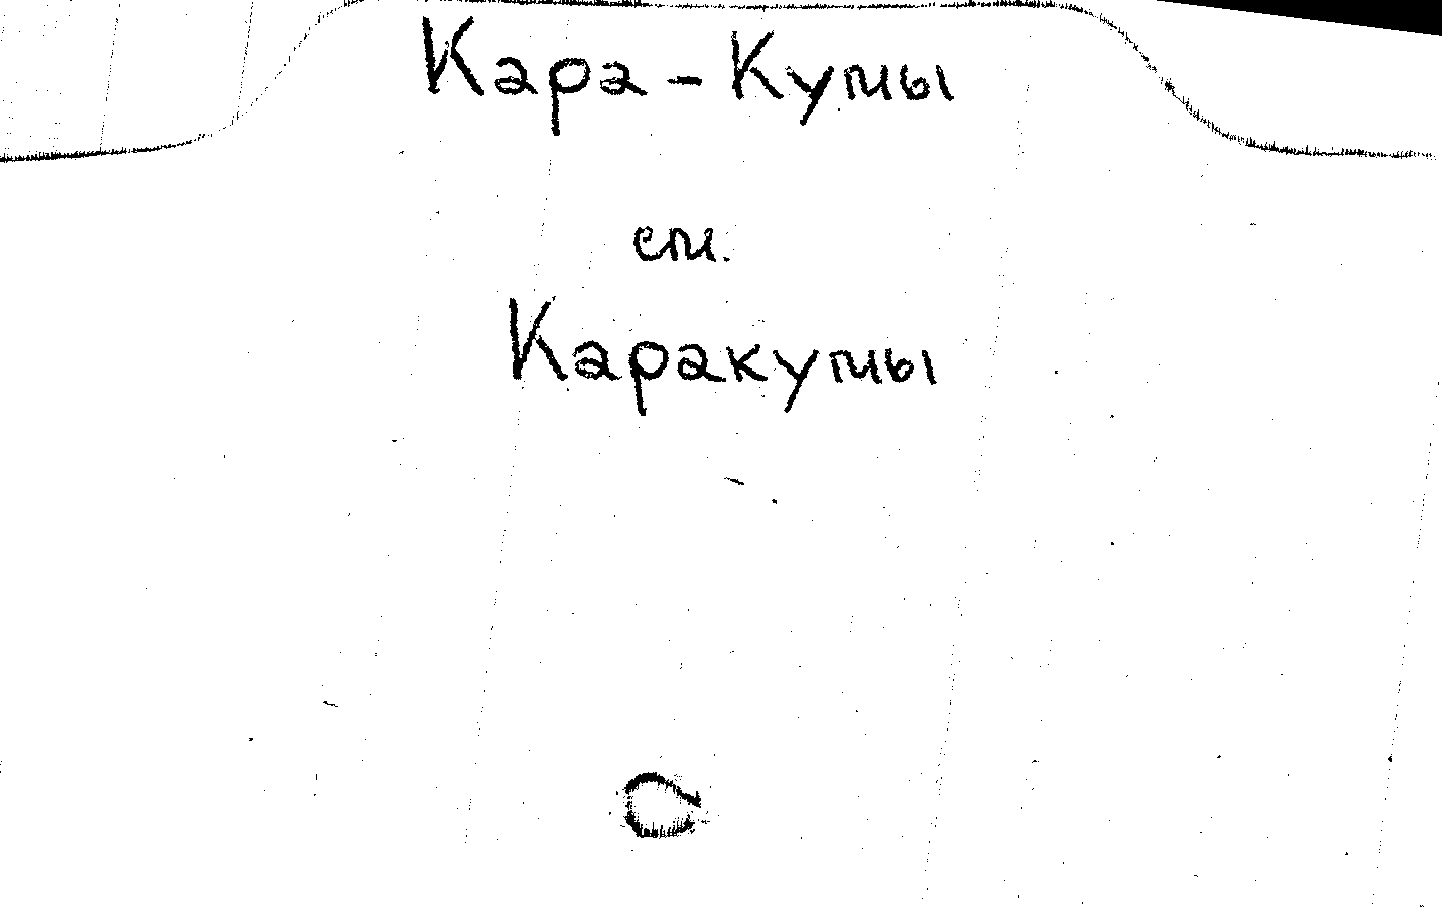 Кара-Кумы
см.
Каракумы